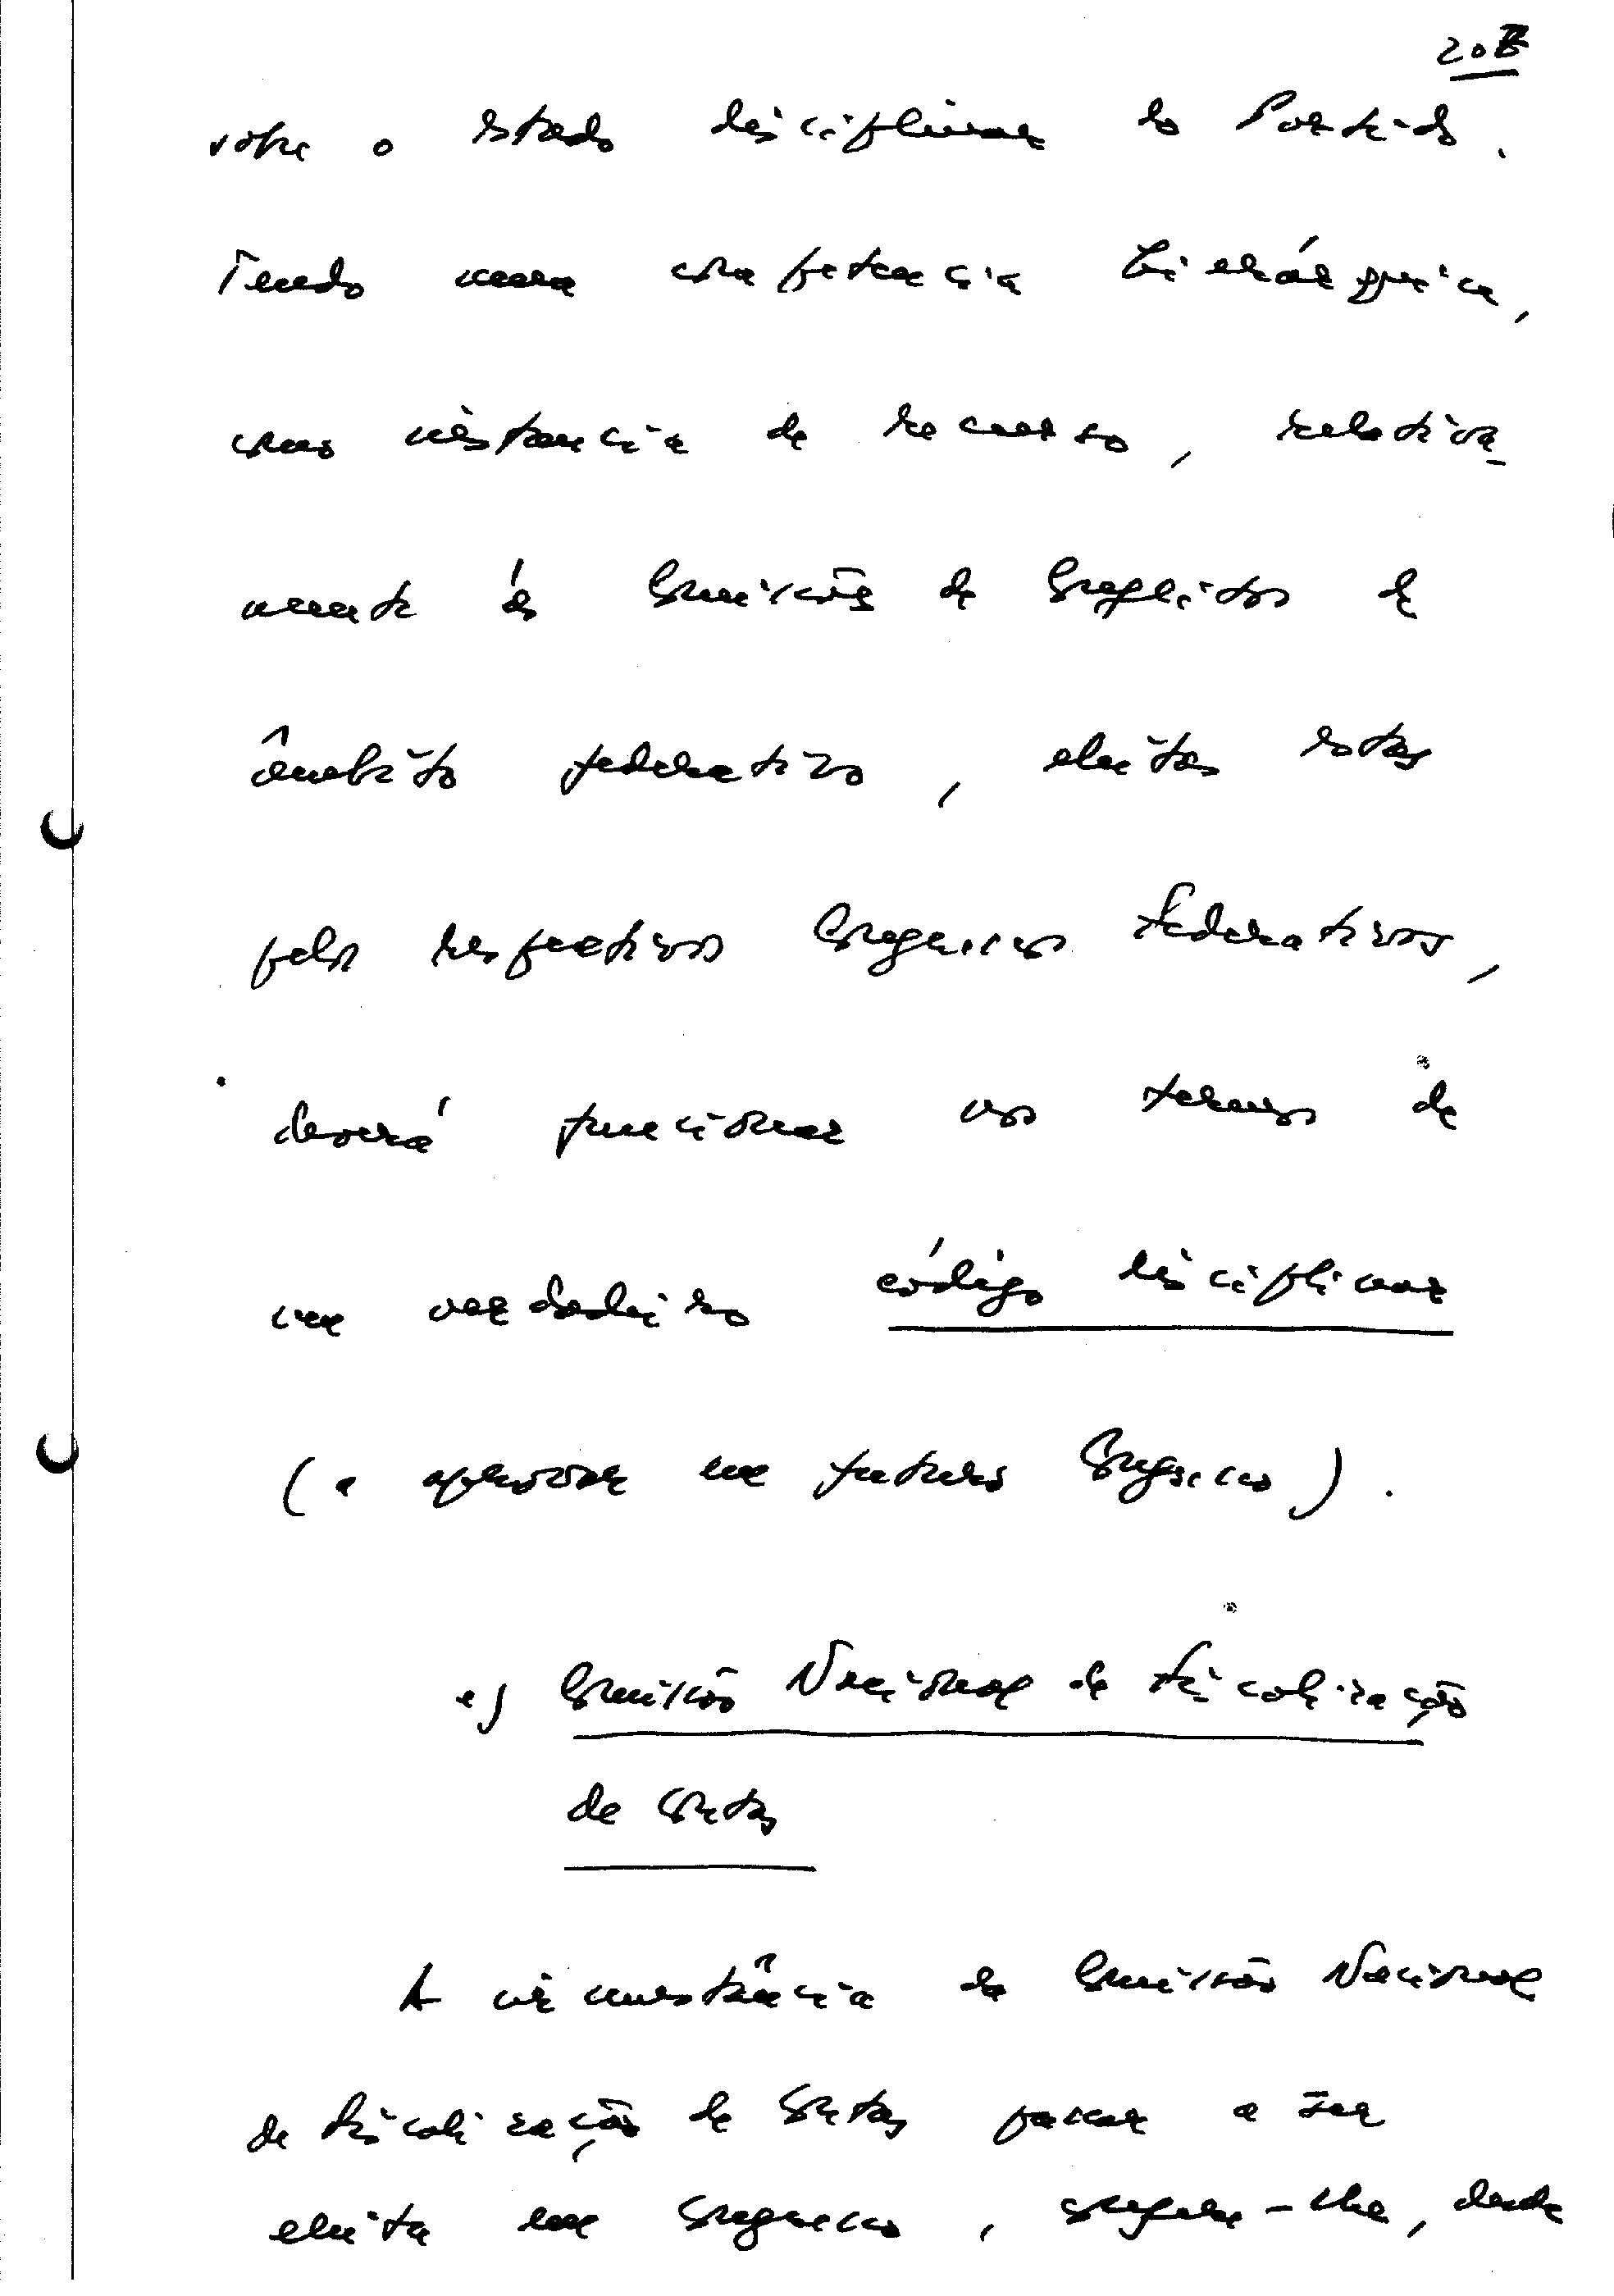 20B
sobre o estado disciplinar do Partido.
Tendo uma competência hierárquica,
como instância de recurso, relativa-
mente às Comissões de Conflitos de
âmbito federativo, eleitas estas
pelos respectivos Congressos Federativos,
deverá funcionar nos termos de
um verdadeiro código disciplinar
(a aprovar em futuro Congresso).
e) Comissão Nacional de Fiscalização
de Contas
A circunstância da Comissão Nacional
de Fiscalização de Contas passar a ser
eleita em Congresso, confere-lhe, desde